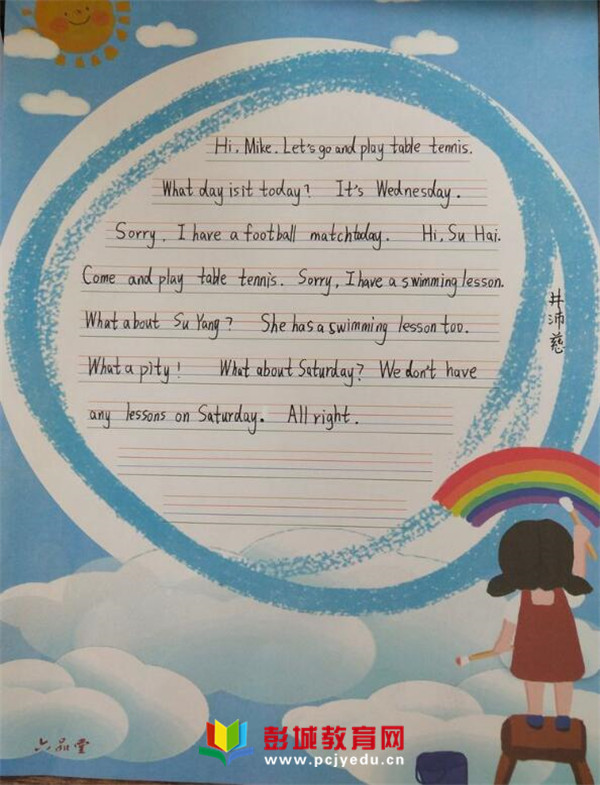 Hi, Mike. Let's go and play table tennis.
What day is it today? It's Wednesday.
Sorry, I have a football match today. Hi, Su Hai.
Come and play table tennis. Sorry, I have a swimming lesson.
What about Su Yang? She has a swimming lesson too.
What a pity! What about Saturday? We don't have
any lessons on Saturday. All right.
井沛慈
六品堂
彭城教育网
www.pcjyedu.cn